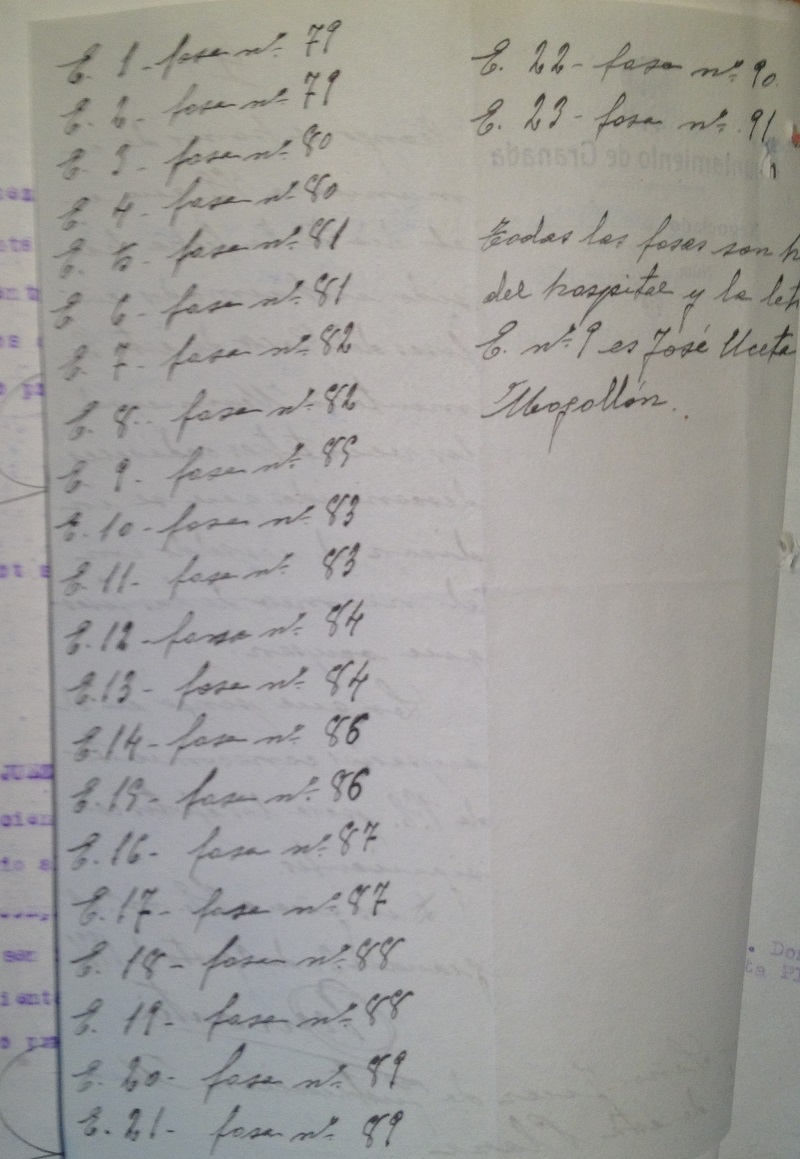 E. 1 - fosa nº 79
E. 2 - fosa nº 79
E. 3 - fosa nº 80
E. 4 - fosa nº 80
E. 5 - fosa nº 81
E. 6 - fosa nº 81
E. 7 - fosa nº 82
E. 8 - fosa nº 82
E. 9 - fosa nº 85
E. 10 - fosa nº 83
E. 11 - fosa nº 83
E. 12 - fosa nº 84
E. 13 - fosa nº 84
E. 14 - fosa nº 86
E. 15 - fosa nº 86
E. 16 - fosa nº 87
E. 17 - fosa nº 87
E. 18 - fosa nº 88
E. 19 - fosa nº 88
E. 20 - fosa nº 89
E. 21 - fosa nº 89
E. 22 - fosa nº 90
E. 23 - fosa nº 91
Todas las fosas son
del hospital y la let
E. nº 9 es José Uceta
Mogollón.